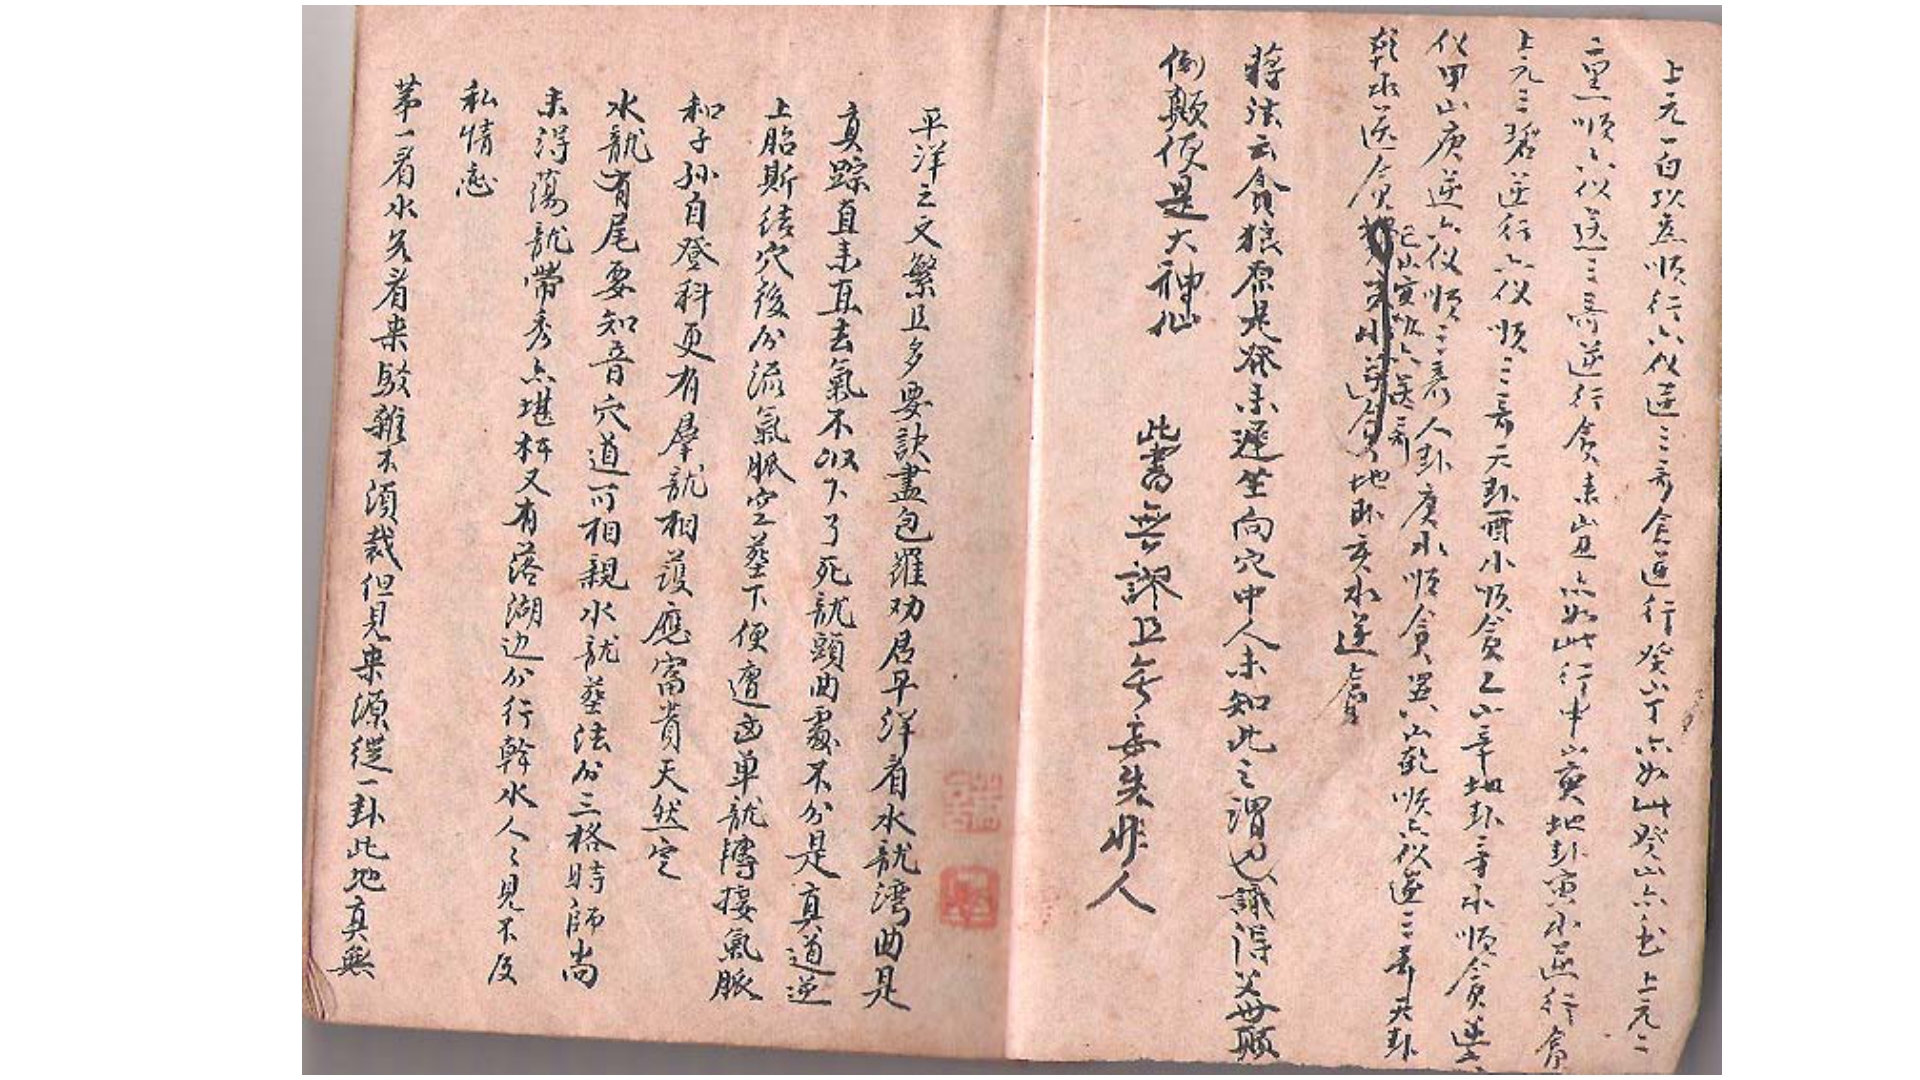 上元一白坎黑順行六儀逆三奇貪逆行癸山丁亦如此癸山六七上元二
二黑順六儀逆三奇逆行貪未山丑亦如此行中寅地卦寅水逆行貪
上元三碧逆行六儀順三奇天卦酉水順貪乙山辛地卦辛水順貪逆六
儀甲山庚逆六儀順三奇人卦庚水順貪 山乾順六儀逆三奇天卦
乾水逆貪 地卦亥水逆貪
蔣法云貪狼原是發未遲坐向穴中人未知此之謂也識得父母顛
倒顛便是大神仙
此書無謬且無妄失非人
平洋之文繁且多要訣盡包羅劝君平洋看水龍湾曲是
真踪直来直去氣不收下了死龍頭曲處不分是真道逆
上胎斯结穴後分流氣脈空葬下便遭凶单龍轉接氣脈
和子孙自登科更有群龍相護應富貴天然定
水龍有尾要知音穴道可相親水龍葬法分三格時師尚
未得荡龍帶秀亦堪杯又有落湖边分行幹水人々見不及
私情恋
苐一看水先看来駁雜不須裁但見来源從一卦此地真無